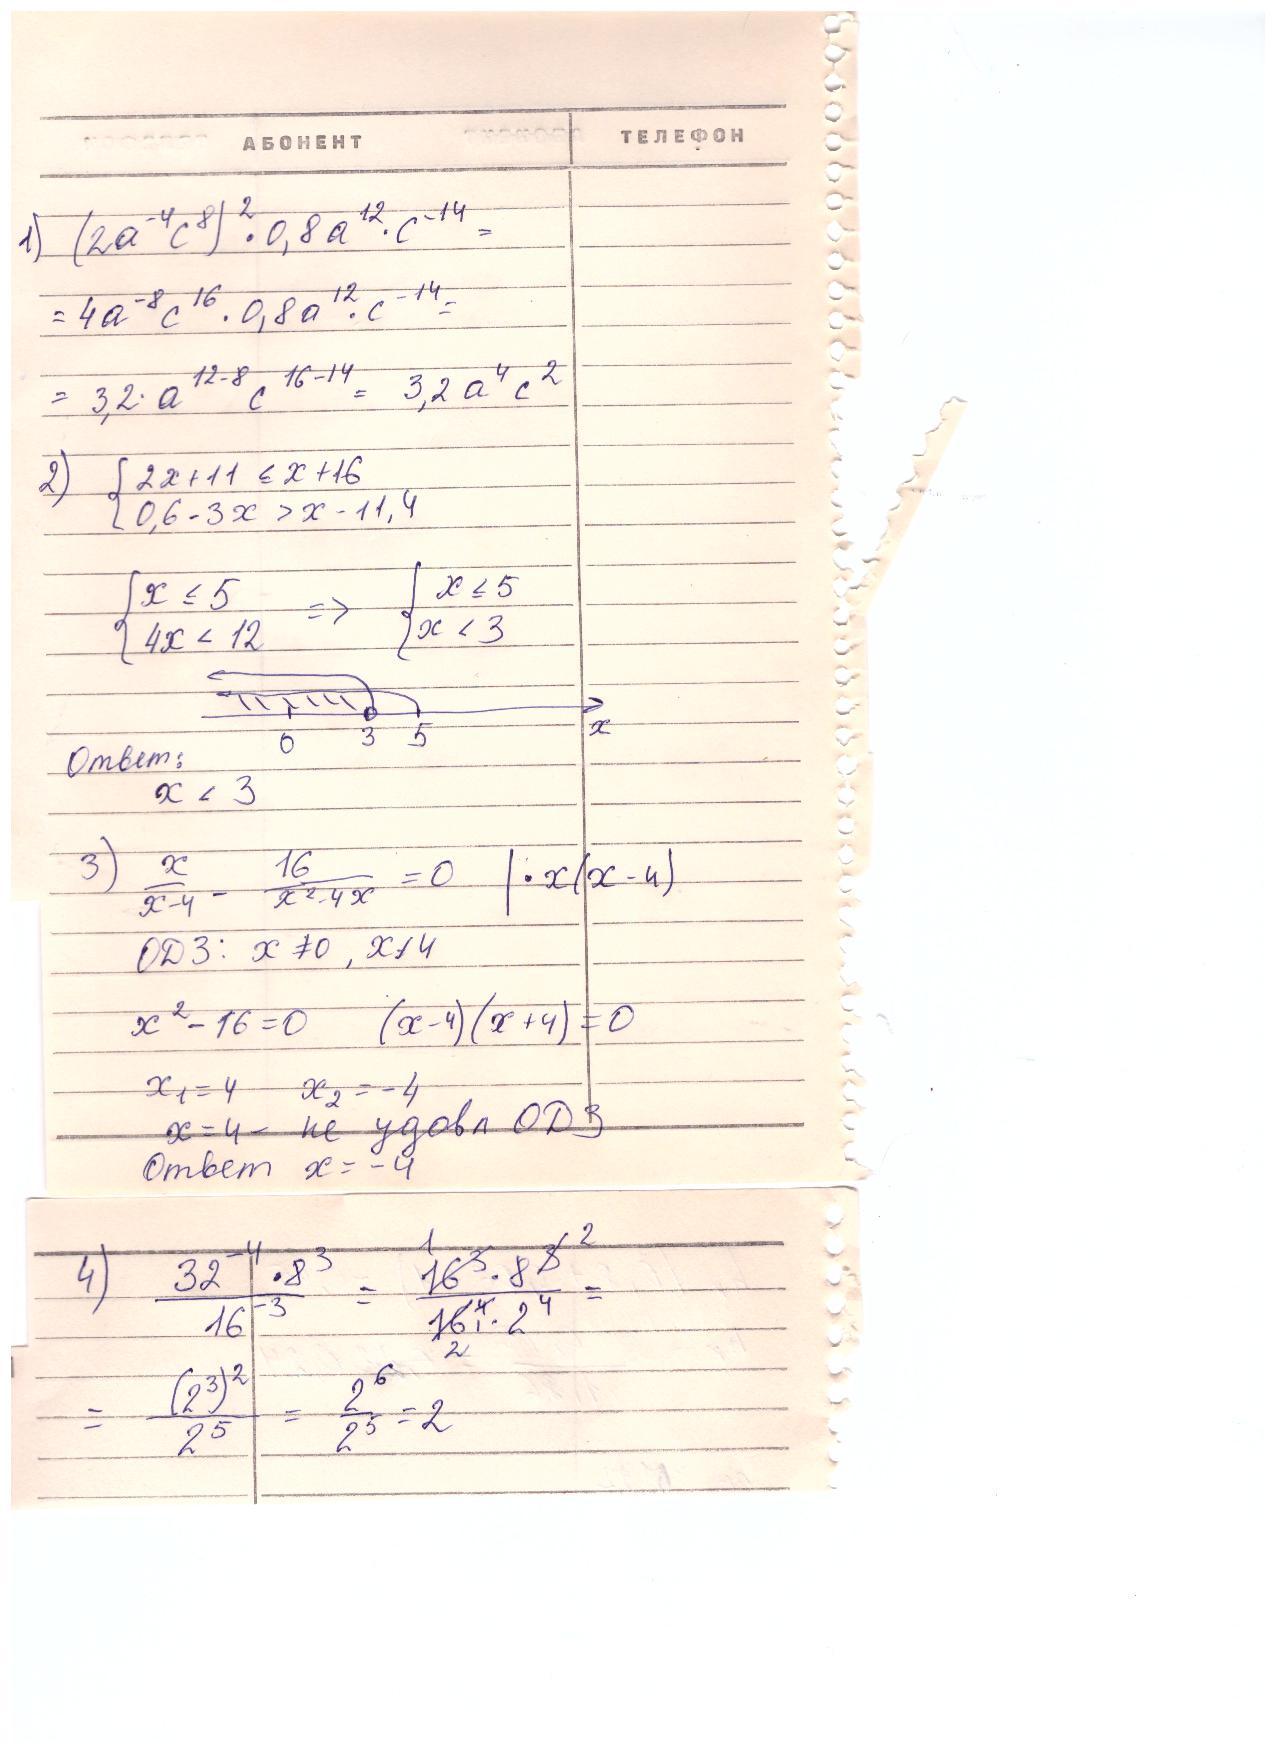 АБОНЕНТ ТЕЛЕФОН
1) (2a⁻⁴c⁸)² · 0,8a¹² · c⁻¹⁴ =
= 4a⁻⁸c¹⁶ · 0,8a¹² · c⁻¹⁴ =
= 3,2 · a¹²⁻⁸ c¹⁶⁻¹⁴ = 3,2a⁴c²
2) { 2x+11 ≤ x+16
0,6-3x > x-11,4
{ x ≤ 5 => { x ≤ 5
4x < 12 x < 3
0 3 5 x
Ответ:
x < 3
3) x/(x-4) - 16/(x²-4x) = 0 | · x(x-4)
ОДЗ: x ≠ 0, x ≠ 4
x² - 16 = 0 (x-4)(x+4) = 0
x₁ = 4 x₂ = -4
x = 4 - не удовл ОДЗ
Ответ x = -4
4) (32⁻⁴ · 8³)/16⁻³ = (16³ · 8³ ²)/(16⁴ · 2⁴) =
= (2³)²/2⁵ = 2⁶/2⁵ = 2